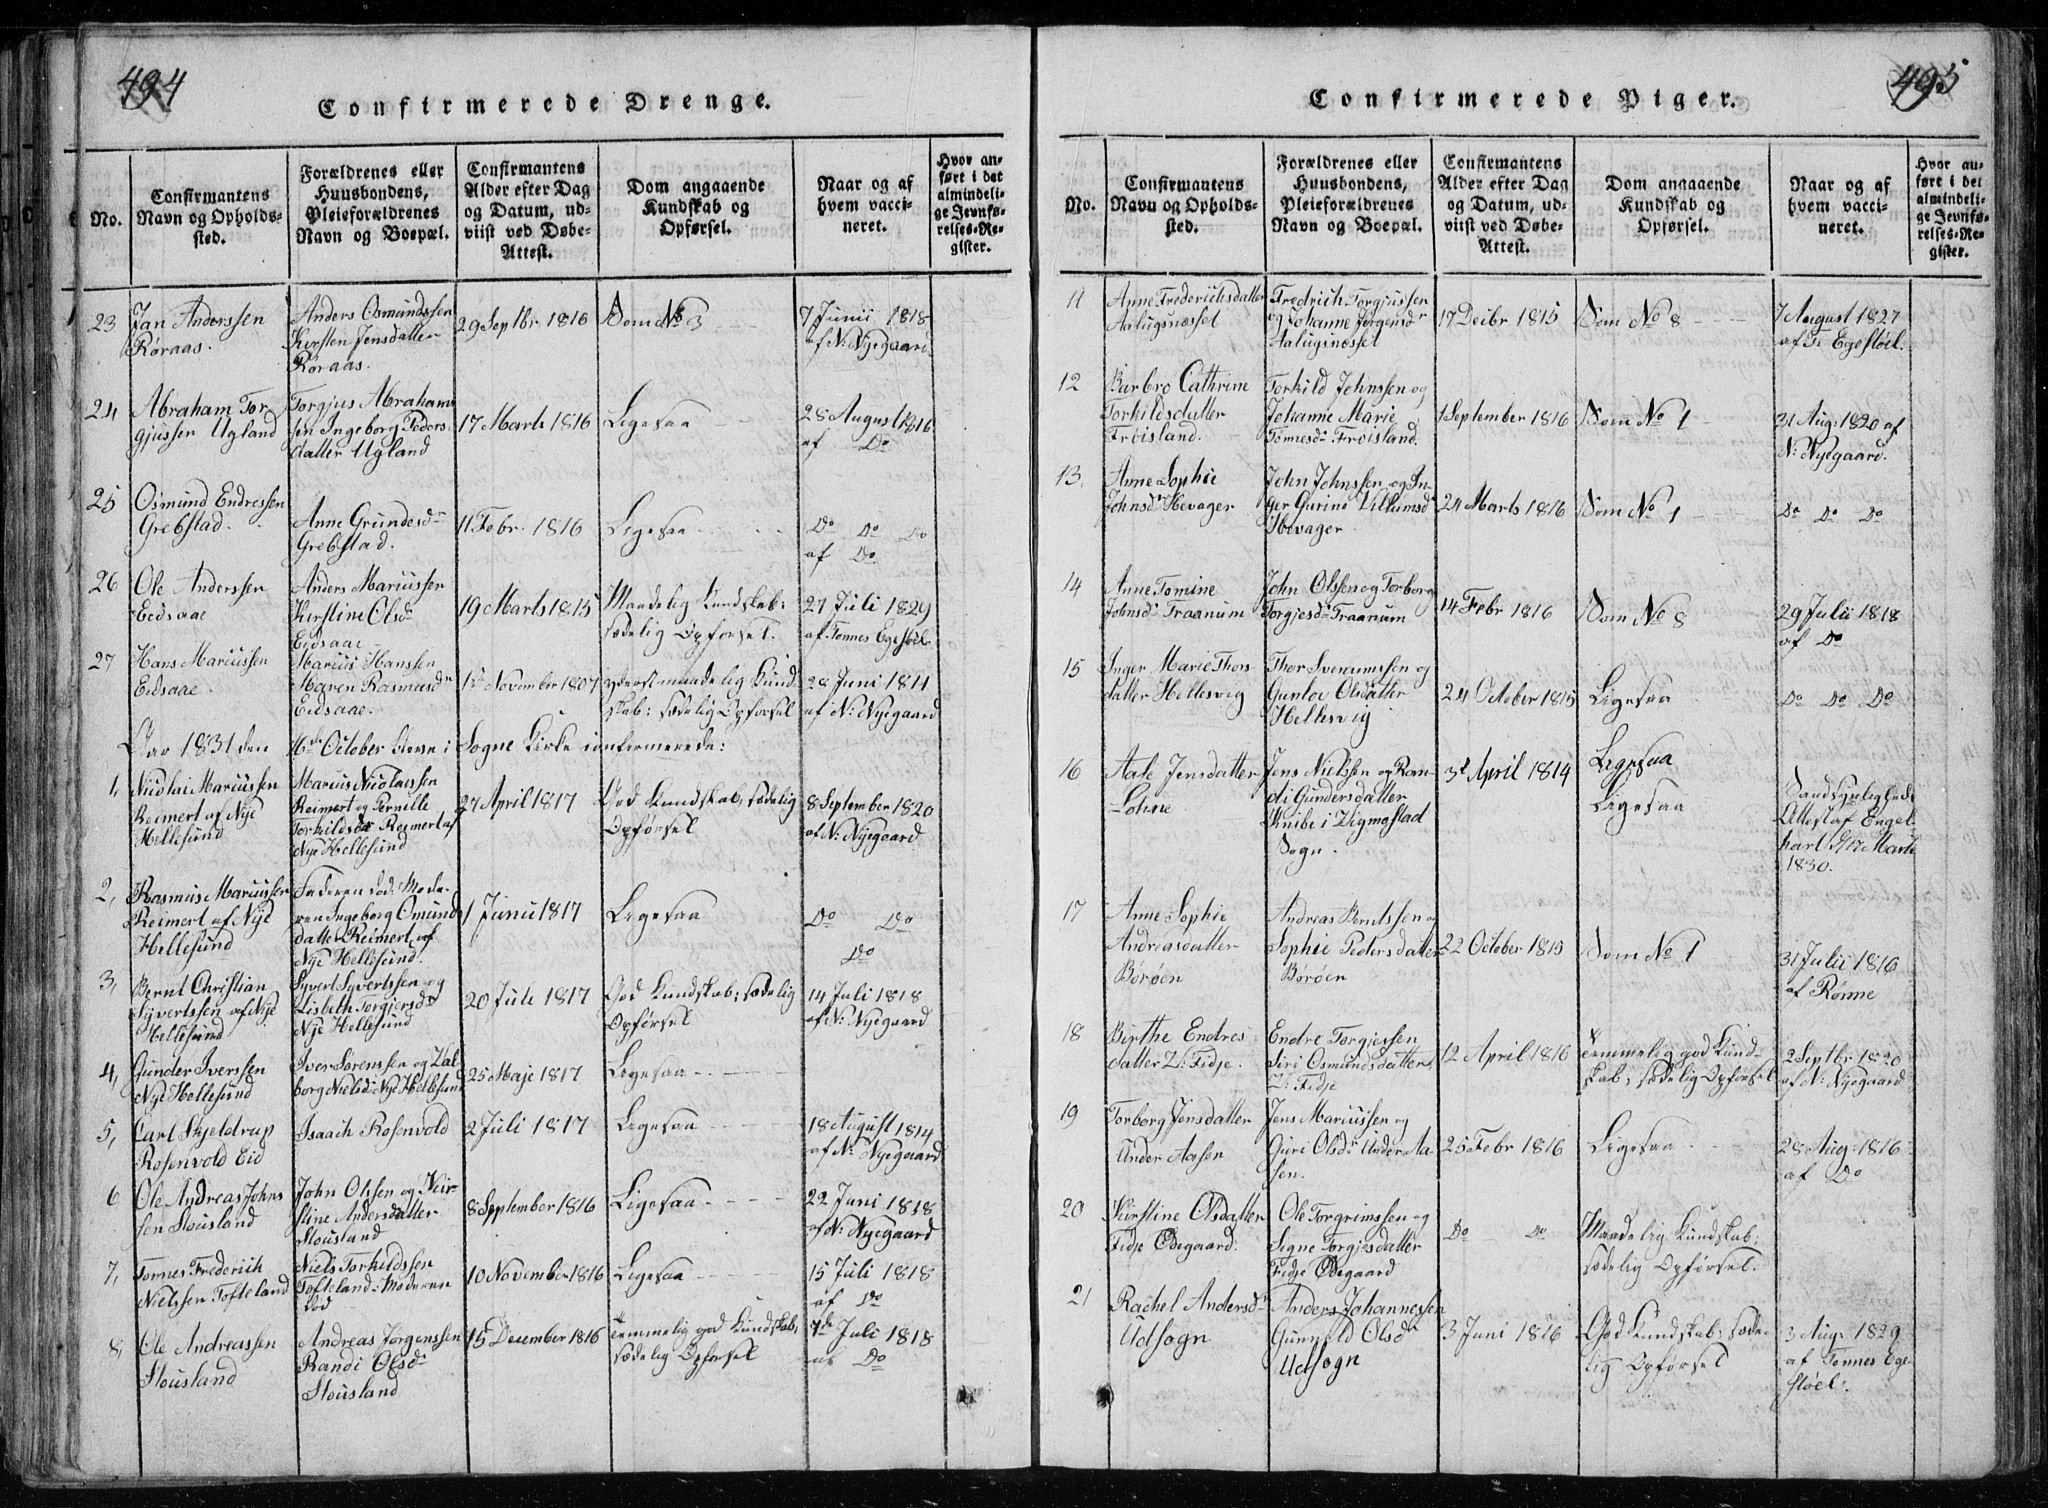 494
Confirmerede Drenge.
No.
Confirmantens
Navn og Opholds-
sted.
Forældrenes eller
Huusbondens,
Pleieforældrenes
Navn og Boepæl.
Confirmantens
Alder efter Dag
og Datum, ud-
viist ved Døbe-
Attest.
Dom angaaende
Kundskab og
Opførsel.
Naar og af
hvem vacci-
neret.
Hvor an-
ført i det
almindeli-
ge Jevnfø-
relses-Re-
gister.
23
Jan Anderssen
Røraas.
Anders Osmundssen
Kirsten Jensdatter
Røraas.
29 Septbr. 1816
Som No 3
7 Junii 1818
af N. Nyegaard
24
Abraham Tor
gjussen Ugland
Torgjus Abrahams
sen Ingeborg Peders
datter Ugland
17 Marts 1816
Ligesaa
28 August 1816
af Do
25
Osmund Endressen
Grebstad.
Anne Grundesdr
Grebstad.
11 Febr. 1816
Ligesaa
Do Do Do
af Do
26
Ole Anderssen
Eidsaae
Anders Mariussen
Kirstine Olsdr
Eidsaae
19 Marts 1815
Maadelig Kundskab:
sædelig Opførsel.
27 Juli 1829
af Tønnes Egestøel
27
Hans Mariussen
Eidsaae.
Marius Hanssen
Maren Rasmusdr
Eidsaae.
1st November 1807
yderst maadelig Kund
skab: sædelig Opførsel
28 Juni 1811
af N. Nyegaard
Aar 1831 den
October bleve i
Sogne Kirke confirmerede:
1,
Nicolai Mariussen
Reimert af Nye
Hellesund
Marius Nicolaissen
Reimert og Pernille
Torkildsdr Reimert af
Nye Hellesund
27 April 1817
God Kundskab, sædelig
Opførsel
8 September 1820
af N. Nyegaard
2,
Rasmus Mariussen
Reimert af Nye
Hellesund
Faderen død. Mode-
ren Ingeborg Omund
datter Reimert af
Nye Hellesund.
1 Junii 1817
Ligesaa
Do Do
Do
3,
Bernt Christian
Syvertssen af Nye
Hellesund
Syvert Syvertssen og
Lisbeth Torgjersdr
Nye Hellesund
20 Juli 1817
God Kundskab; sædelig
Opførsel
14 Juli 1818
af N. Nyegaard
4,
Gunder Iverssen
Nye Hellesund
Iver Sørenssen og Val
borg Nielsdr Nye Hellesund
25 Maje 1817
Ligesaa
5,
Carl Skjeldrup
Rosenvold Eid
Isaach Rosenvold
2 Juli 1817
Ligesaa
18 August 1814
af N. Nyegaard
6
Ole Andreas Johns
sen Stousland
John Olssen og Kir-
stine Andersdatter
Stousland
8 September 1816
Ligesaa
22 Juni 1818
af N. Nyegaard
7,
Tønnes Frederich
Nielssen Tofteland
Niels Torkildssen
Tofteland. Moderen
død
10 November 1816
Ligesaa
15 Juli 1818
af Do
8,
Ole Andreassen
Stousland
Andreas Jørgenssen
Randi Olsdr
Stousland
15 December 1816
Temmelig god Kundskab,
sædelig Opførsel
7de Juli 1818
af Do
495
Confirmerede Piger.
No.
Confirmantens
Navn og Opholds-
sted.
Forældrenes eller
Huusbondens,
Pleieforældrenes
Navn og Boepæl.
Confirmantens
Alder efter Dag
og Datum, ud-
viist ved Døbe-
Attest.
Dom angaaende
Kundskab og
Opførsel.
Naar og af
hvem vacci-
neret.
Hvor an-
ført i det
almindeli-
ge Jevnfø-
relses-Re-
gister.
11
Anne Frederichsdatter
Aalugsnæsset
Fredrich Torgjussen
og Johanne Jørgensdr
Aalugsnæsset
17 Decbr 1815
Som No 8
7 August 1827
af T. Egestøel.
12
Barbro Cathrine
Torkildsdatter
Frøisland.
Torkild Johnssen og
Johanne Marie
Tønnesdr Frøisland.
1 September 1816
Som No 1
31 Aug. 1820 af
N. Nyegaard.
13.
Anne Sophie
Johnsdr Høvager
John Johnssen og In-
ger Gurine Villumsdr
Høvager
24 Marts 1816
Som No 1
Do Do Do
14
Anne Tomine
Johnsdr Traanum
John Olssen og Torborg
Torgjesdr Traanum
14 Febr 1816
Som No 8
29 Julii 1818
af Do
15
Inger Marie Thors
datter Hellesvig
Thor Svenumssen og
Gunloe Olsdatter
Hellesvig
24 October 1815
Ligesaa
Do Do Do
16
Aale Jensdatter
Lohne
Jens Nielssen og Ran-
di Gundersdatter
Knibe i Vigmostad
Sogn.
3d April 1814
Ligesaa
Ligesaa
Sandsynligheds
Attest af Engel
hart 17 Marts
1830.
17
Anne Sophie
Andreasdatter
Børøen
Andreas Berntssen og
Sophie Pedersdatter
Børøen
22 October 1815
Som No 1
31 Julii 1816
af Rønne
18
Birthe Endres
datter V. Fidje.
Endre Torgjerssen
Siri Osmundsdatter
V. Fidje
12 April 1816
Temmelig god Kund-
skab, sædelig Opførsel
2 Septbr 1820
af N. Nyegaard
19
Torborg Jensdatter
Under Aasen
Jens Mariussen og
Guri Olsdr Under Aa-
sen.
25 Febr 1816
Ligesaa
28 Aug. 1816
af Do
20
Kirstine Olsdatter
Fidje Ødegaard.
Ole Torgrimssen og
Signe Torgjesdatter
Fidje Ødegaard
Do Do
Maadelig Kundskab;
sædelig Opførsel.
21
Rachel Andersdr
Udsogn
Anders Johannessen
Gunvald Olsdr
Udsogn
3 Juni 1816
God Kundskab; sæde-
lig Opførsel
3 Aug. 1829
af Tønnes Ege-
støel.